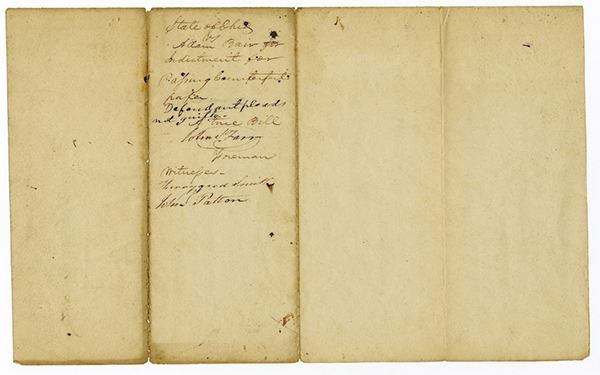 State of Ohio
vs
Adam Bair for
Indictment for
Passing Counterfeit
paper,
Defendant pleads
not guilty
A True Bill
John S Farr
Foreman
Witnesses
Smith
Patton